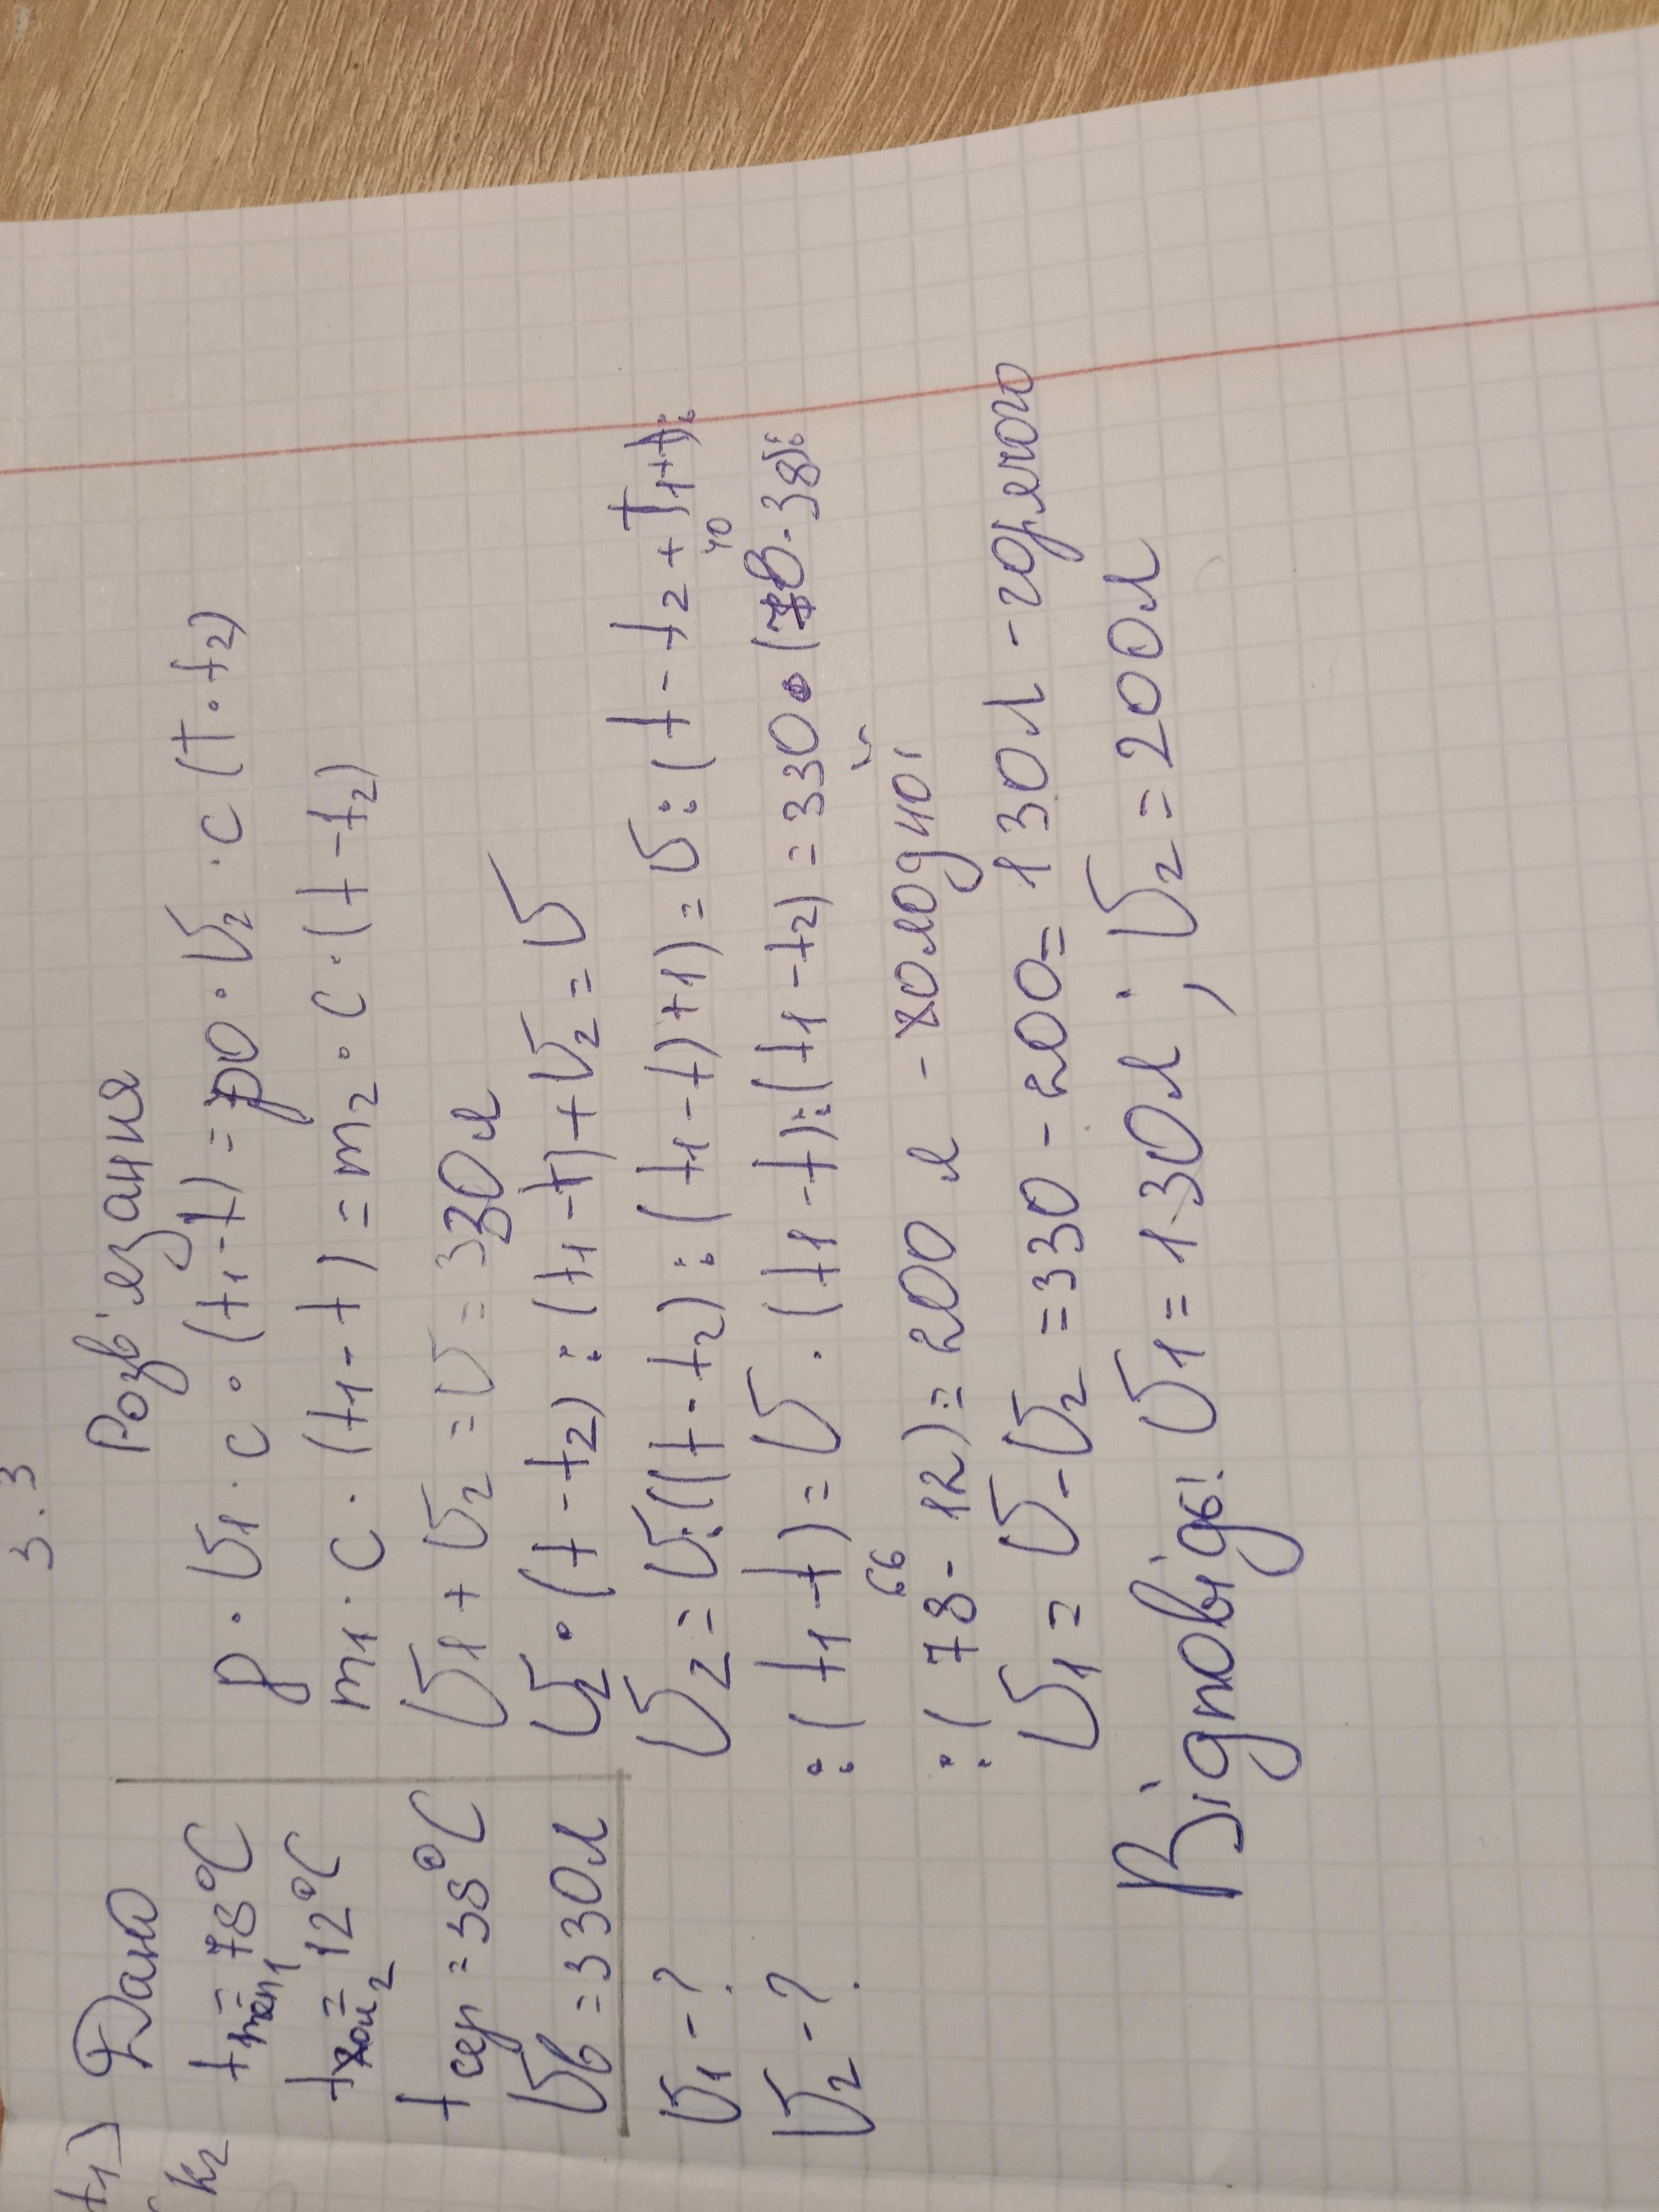 3.3
t1)
кг
Дано
tтеп1 = 78°C
tхол2 = 12°C
tсер = 38°C
Vв = 330л
V1 - ?
V2 - ?
Розв'езання
ρ · V1 · c · (t1 - t) = ρ · V2 · c (t · t2)
m1 · c · (t1 - t) = m2 · c · (t - t2)
V1 + V2 = V = 330л
V2 · (t - t2) : (t1 - t) + V2 = V
V2 = V:((t - t2) : (t1 - t) + 1) = V : (t - t2 + t1 + t):
: (t1 - t) = V · (t1 - t):(t1 - t2) = 330 · (78 - 38):
40
: (78 - 12) = 200 л - холодної
66
V1 = V - V2 = 330 - 200 = 130л - горячого
Відповідь: V1 = 130л ; V2 = 200л